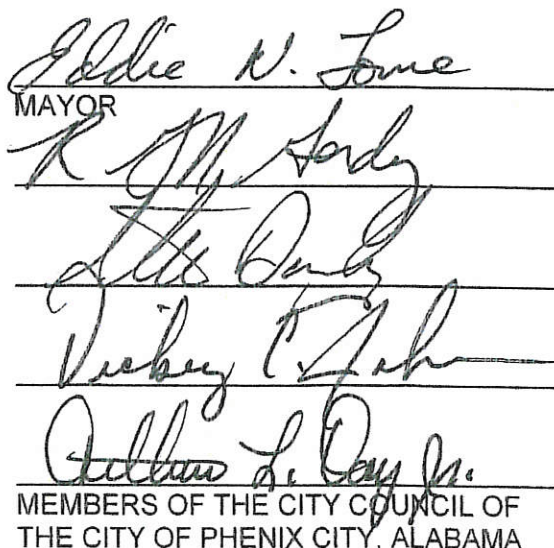 Eddie N. Lowe
MAYOR
R M. Gordy
Vickey C. Joh
Arthur L. Day Jr.
MEMBERS OF THE CITY COUNCIL OF
THE CITY OF PHENIX CITY, ALABAMA